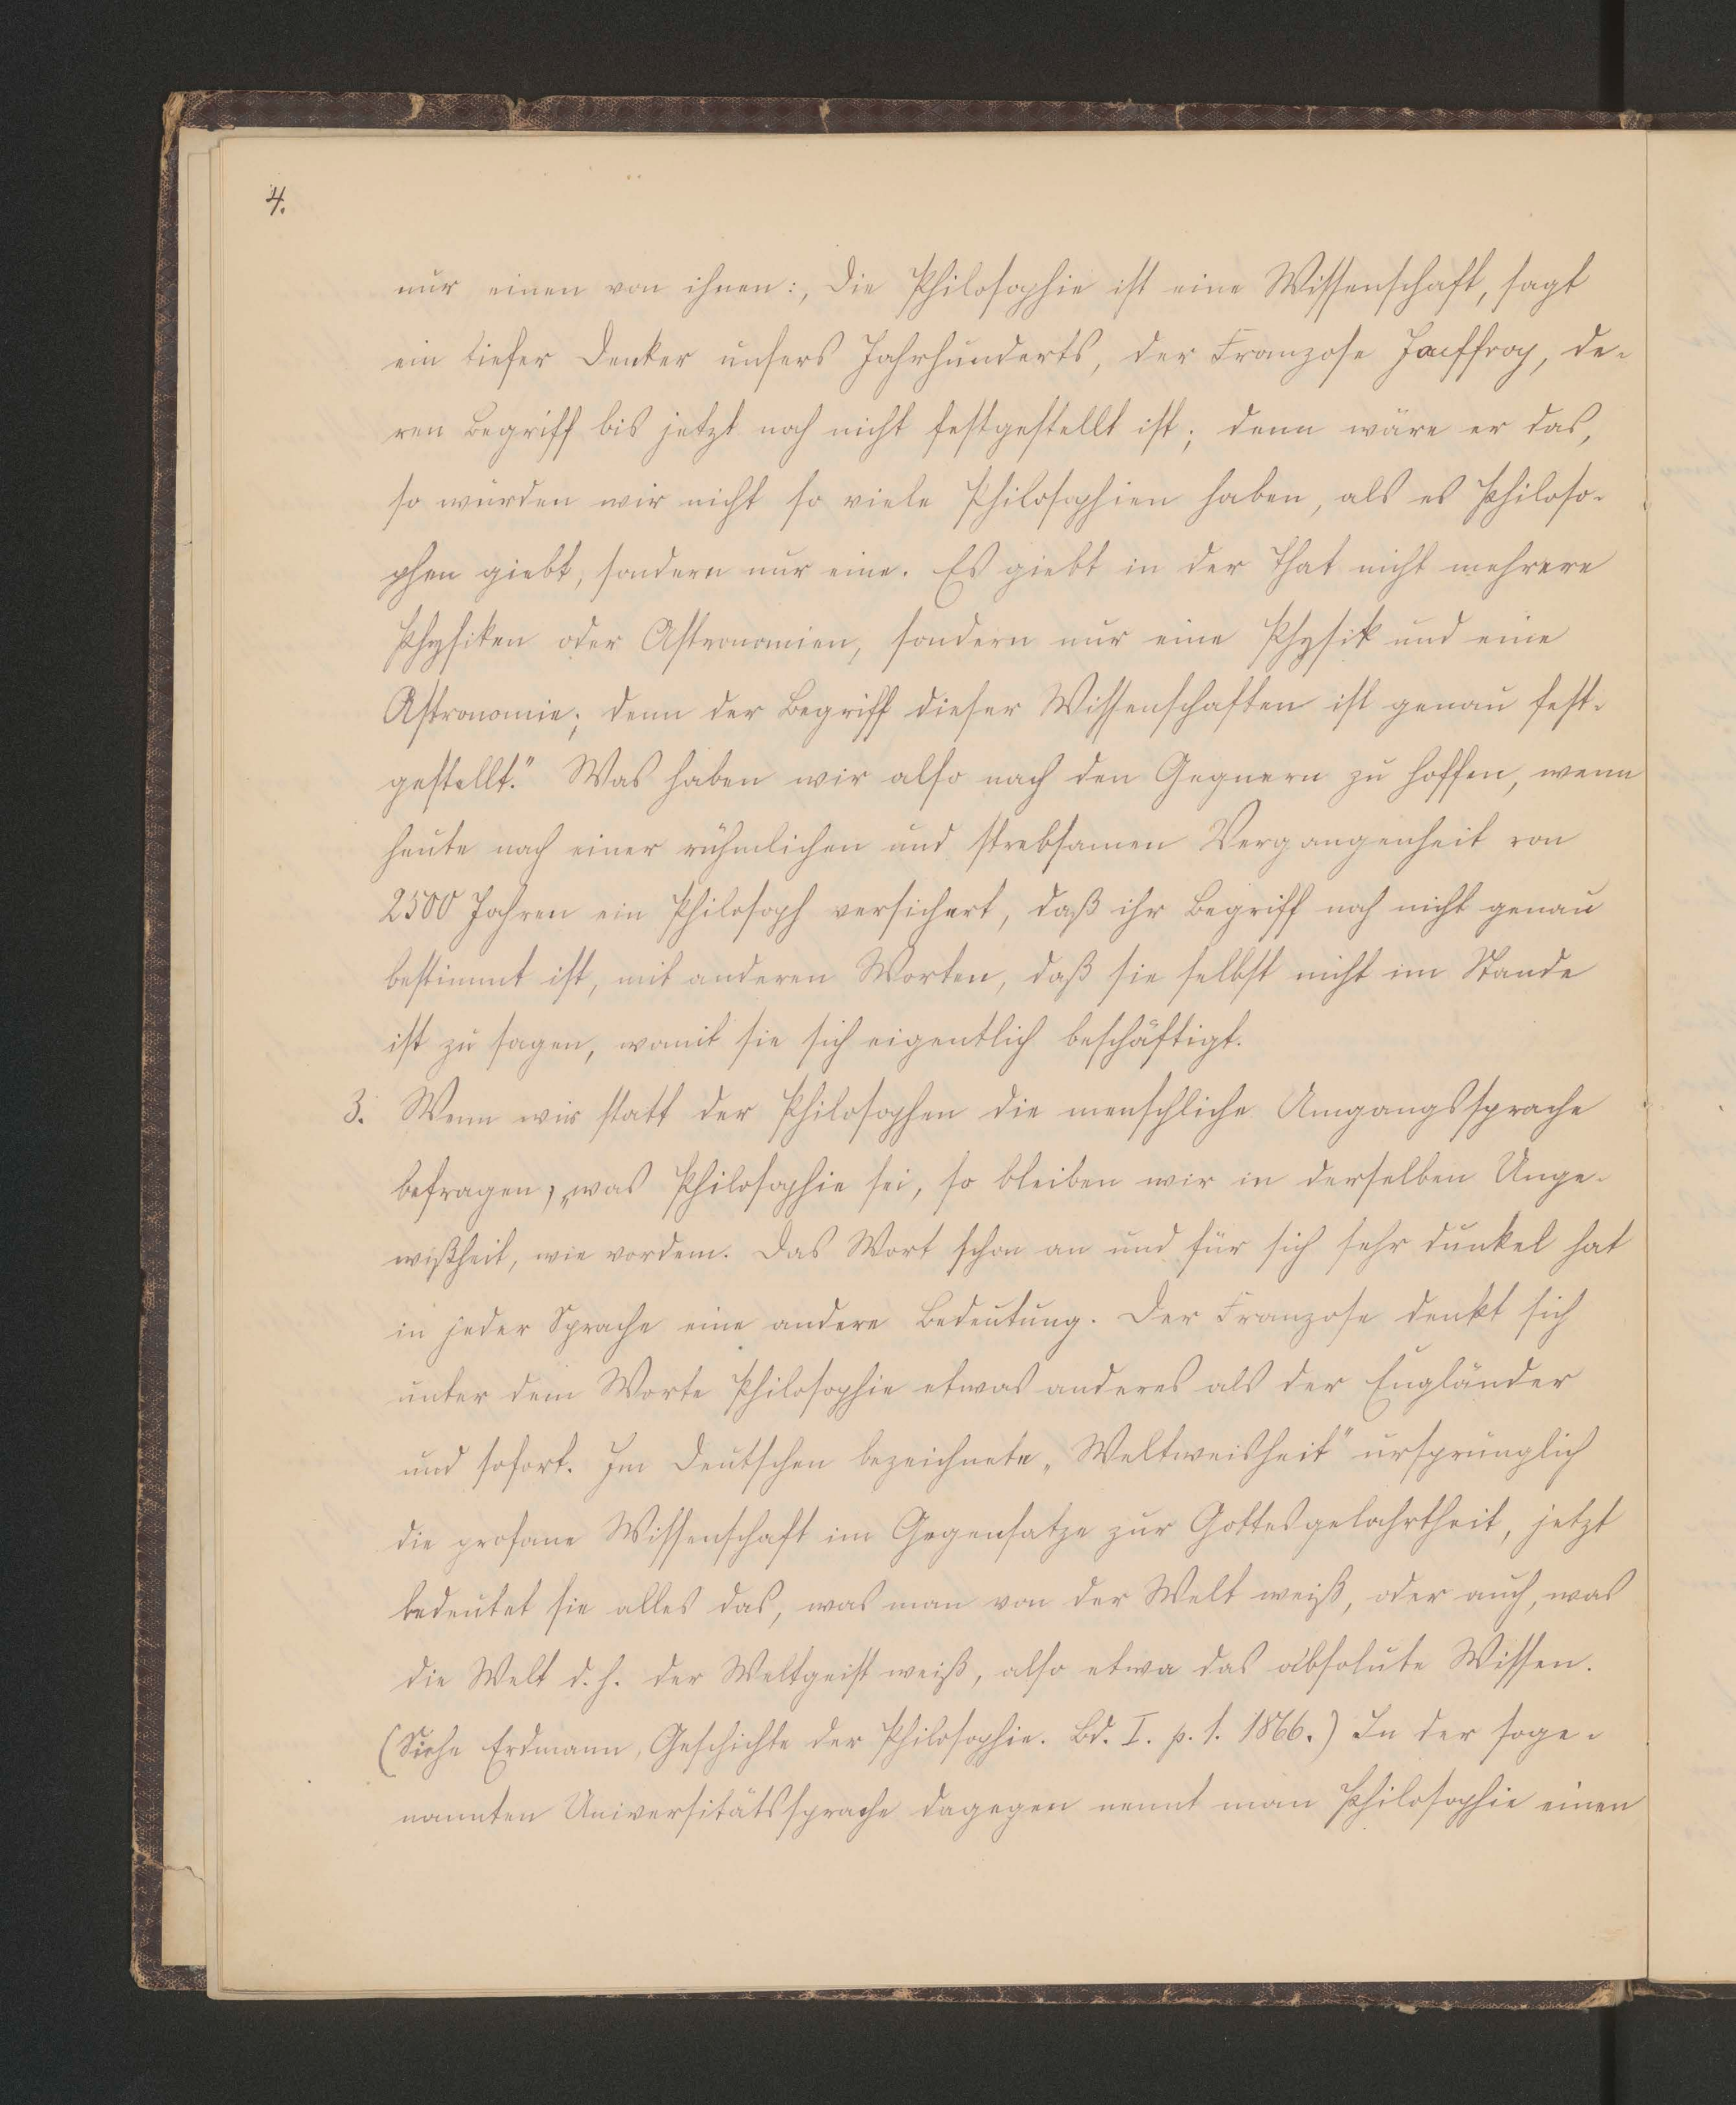 4.
nur einen von ihnen:, Die Philosophie ist eine Wissenschaft, sagt
ein tiefer Denker unsers Jahrhunderts, der Franzose Jouffroy, de-
ren Begriff bis jetzt noch nicht festgestellt ist; denn wäre er das,
so würden wir nicht so viele Philosophien haben, als es Philoso-
phen giebt, sondern nur eine. Es giebt in der That nicht mehrere
Physiken oder Astronomien, sondern nur eine Physik und eine
Astronomie; denn der Begriff dieser Wissenschaften ist genau fest-
gestellt." Was haben wir also nach den Gegnern zu hoffen, wenn
heute nach einer rühmlichen und strebsamen Vergangenheit von
2500 Jahren ein Philosoph versichert, daß ihr Begriff noch nicht genau
bestimmt ist, mit anderen Worten, daß sie selbst nicht im Stande
ist zu sagen, womit sie sich eigentlich beschäftigt.
3. Wenn wir statt der Philosophen die menschliche Umgangssprache
befragen, was Philosophie sei, so bleiben wir in derselben Unge-
wißheit, wie vordem. Das Wort schon an und für sich sehr dunkel hat
in jeder Sprache eine andere Bedeutung. Der Franzose denkt sich
unter dem Worte Philosophie etwas anderes als der Engländer
und sofort. Im Deutschen bezeichnete „Weltweisheit" ursprünglich
die profane Wissenschaft im Gegensatze zur Gottesgelahrtheit, jetzt
bedeutet sie alles das, was man von der Welt weiß, oder auch, was
die Welt d. h. der Weltgeist weiß, also etwa das absolute Wissen.
(Siehe Erdmann, Geschichte der Philosophie. Bd. I. p. 1. 1866.) In der soge-
nannten Universitätssprache dagegen nennt man Philosophie einen